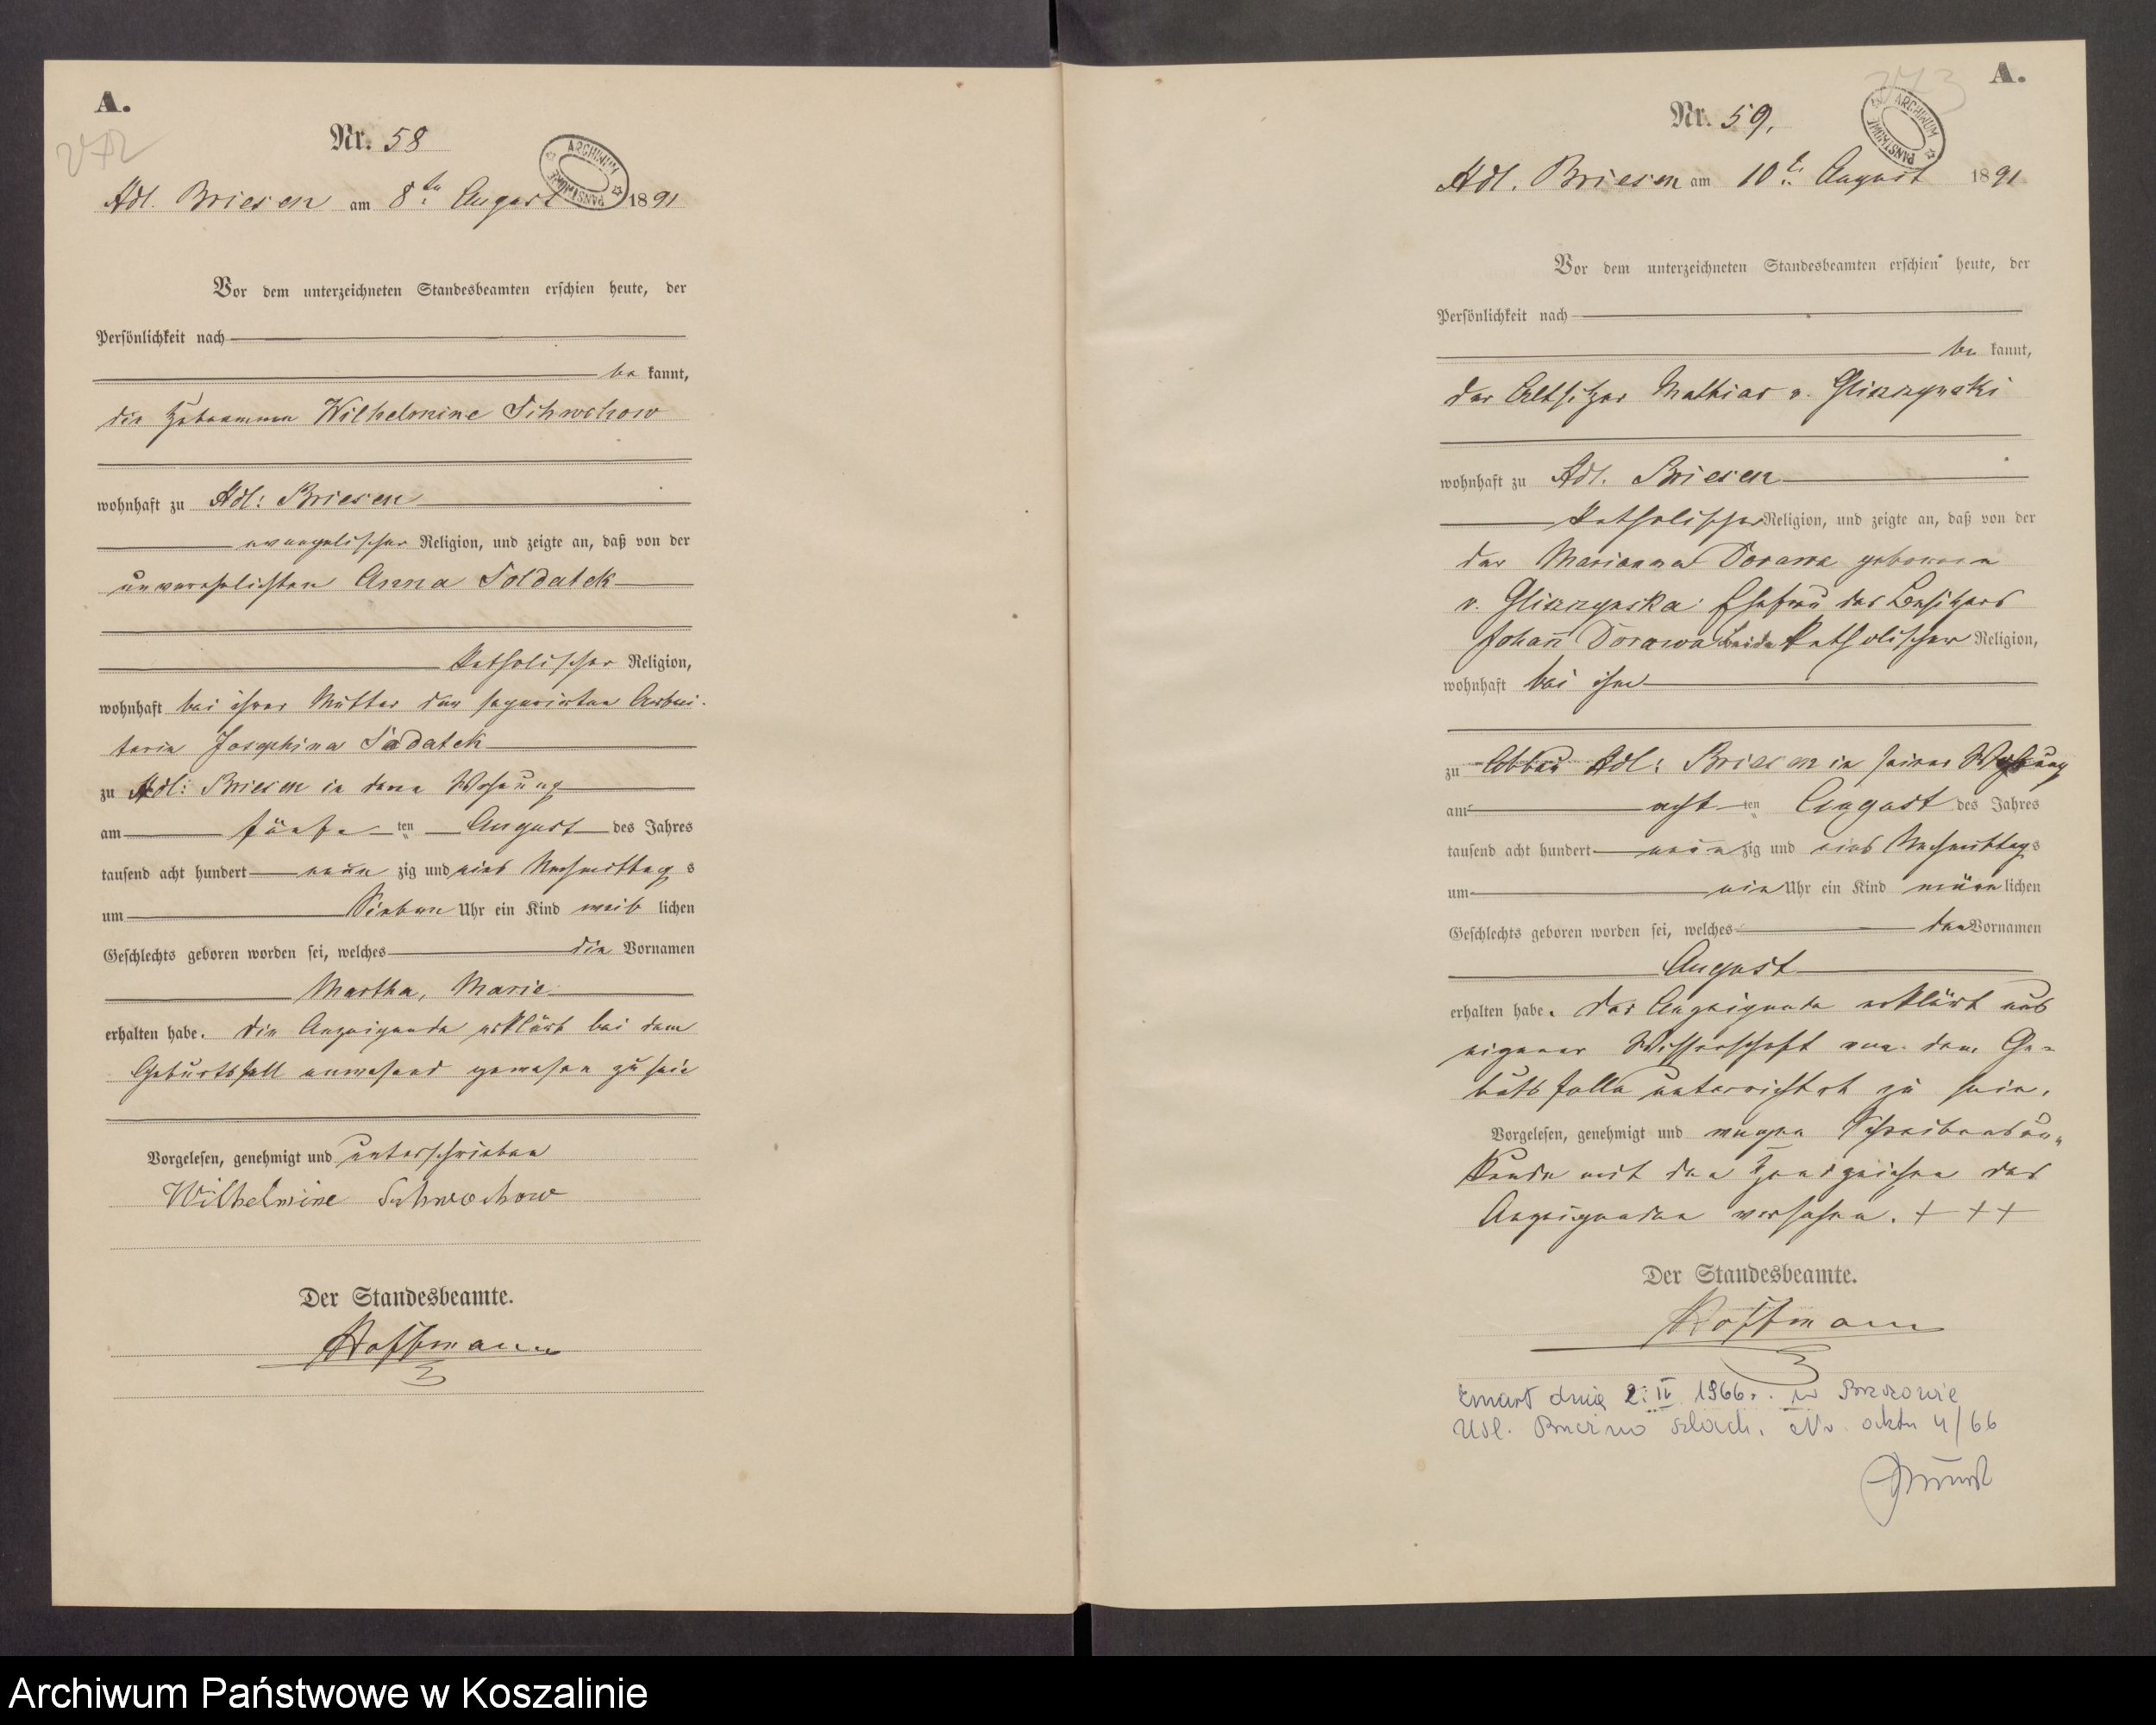 A.
272
Nr. 58
ARCHIWUM PAŃSTWOWE
Adl. Briesen am 8ten August 1891
Vor dem unterzeichneten Standesbeamten erschien heute, der
Persönlichkeit nach
be kannt,
die Hebeamme Wilhelmine Schwchow
wohnhaft zu Adl: Briesen
evangelischer Religion, und zeigte an, daß von der
unverehelichten Anna Soldatek
katholischer Religion,
wohnhaft bei ihrer Mutter der separirten Arbei-
terin Josephina Sadatek
zu Adl: Briesen in deren Wohnung
am fünften August des Jahres
tausend acht hundert neun zig und eins Nachmittag s
um Sieben Uhr ein Kind weib lichen
Geschlechts geboren worden sei, welches die Vornamen
Martha, Marie
erhalten habe. Die Anzeigende erklärt bei dem
Geburtsfall anwesend gewesen zu sein
Vorgelesen, genehmigt und unterschrieben
Wilhelmine Schwochow
Der Standesbeamte.
Hoffmann
A.
273
Nr. 59.
ARCHIWUM PAŃSTWOWE
Adl. Briesen am 10t. August 1891
Vor dem unterzeichneten Standesbeamten erschien heute, der
Persönlichkeit nach
be kannt,
der Altsitzer Mathias v. Gliszzynski
wohnhaft zu Adl. Briesen
katholischer Religion, und zeigte an, daß von der
der Marianna Dorawa geborenen
v. Gliszzynska Ehefrau des Besitzers
Johann Dorawa beide katholischer Religion,
wohnhaft bei ihm
zu Abbau Adl: Briesen in seiner Wohnung
am acht ten August des Jahres
tausend acht hundert neun zig und eins Nachmittags
um ein Uhr ein Kind männ lichen
Geschlechts geboren worden sei, welches den Vornamen
August
erhalten habe. Der Anzeigende erklärt aus
eigener Wissenschaft von dem Ge-
burtsfalle unterrichtet zu sein.
Vorgelesen, genehmigt und wegen Schreibensun-
kunde mit den Handzeichen des
Anzeigenden versehen. + + +
Der Standesbeamte.
Hoffmann
Zmarł dnia 2. IV 1966r. w Brzozowie
USC. Brzeźno Szlach. Nr. aktu 4/66
Archiwum Państwowe w Koszalinie